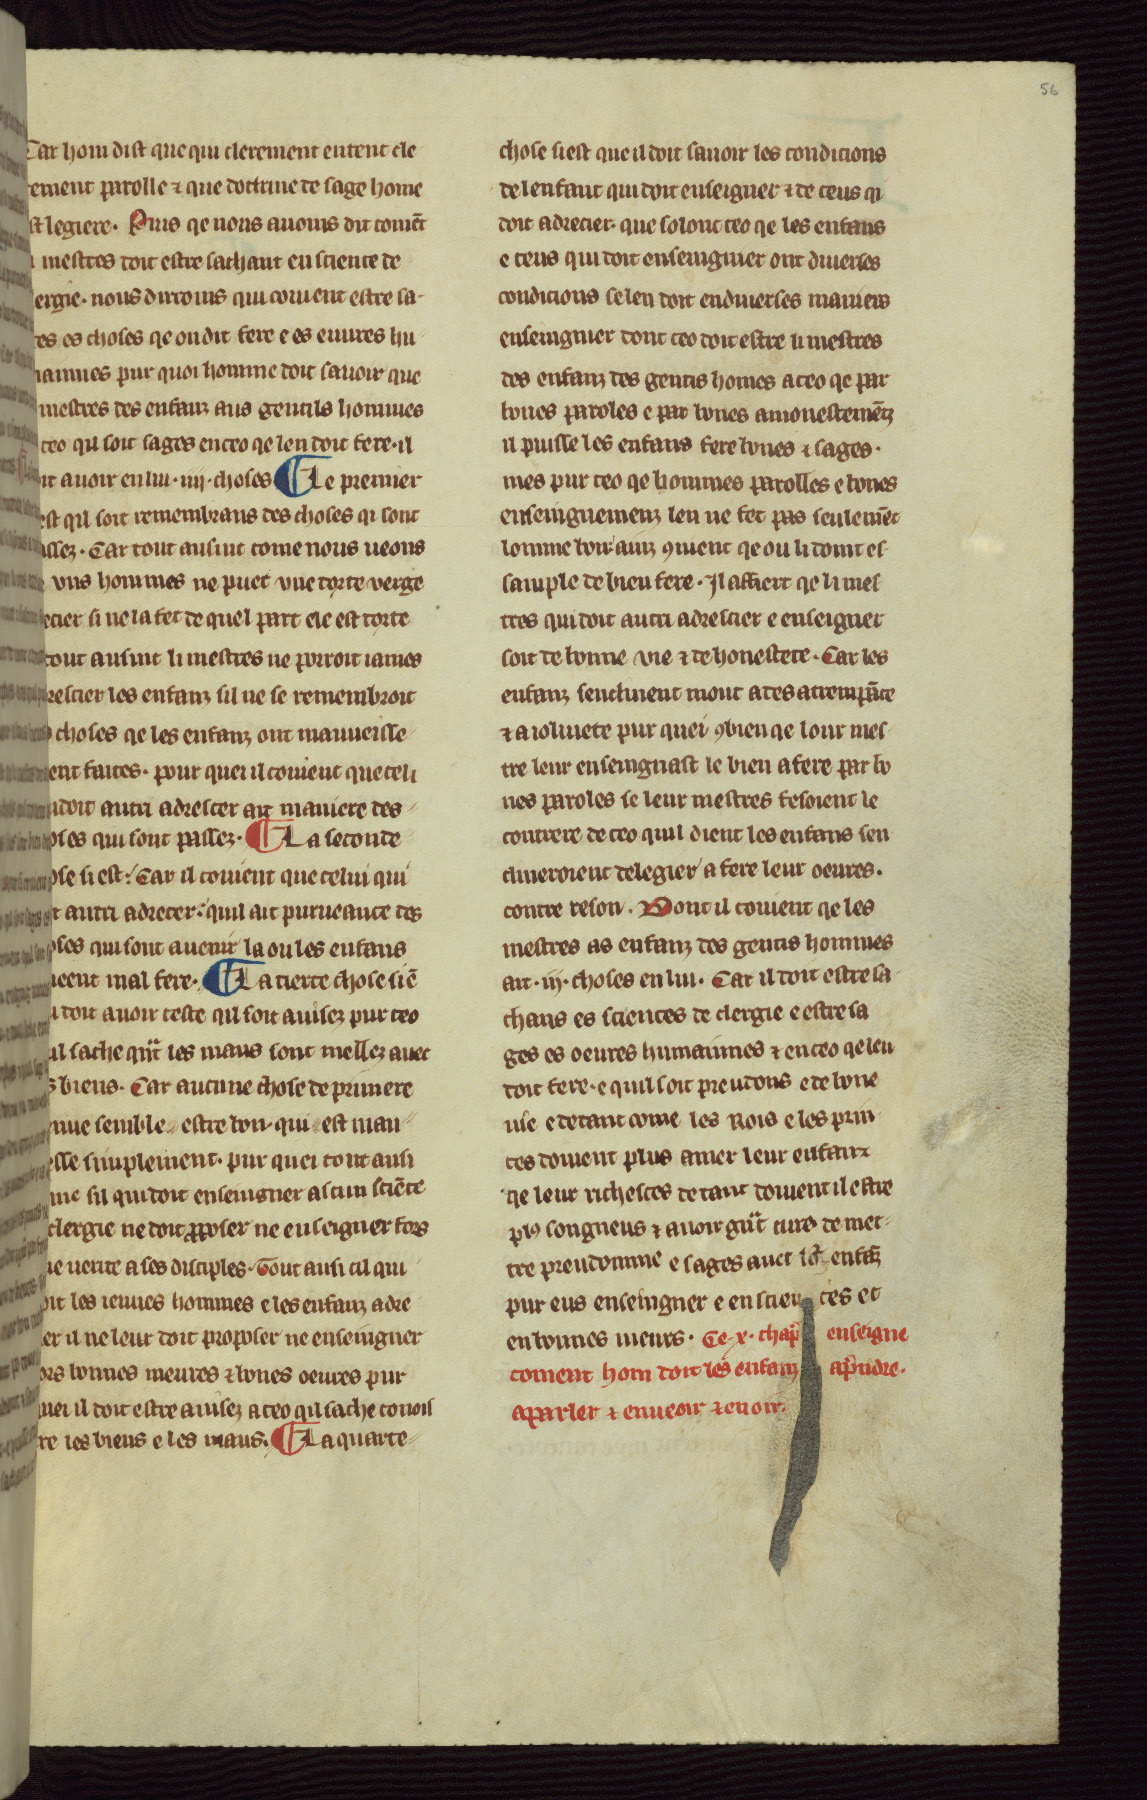 56
Car hom dist que qui clerement entent cle
rement parolle ⁊ que doctrine de sage home
st legiere. Puis qe nous auoms dit comẽt
mestres doit estre sachant en science de
ergie. nous diroms qui couient estre sa-
es es choses qe on dit fere e es euures hu
mainnes pur quoi homme doit sauoir que
mestres des enfanz aus gentils hommes
ceo qil soit sages en ceo qe len doit fere. il
it auoir en lui .iiij. choses ¶ Le premier
est qil soit remembrans des choses qi sont
assez. Car tout ausint come nous ueons
vns hommes ne puet vne torte verge
ecier si ne la fet de quel part ele est torte
tout ausint li mestres ne porroit iames
rescier les enfanz sil ne se remembroit
choses qe les enfanz ont mauueisse
ent faites. pour quei il couient que celi
doit autri adrescer ait maniere des
oses qui sont passez. ¶ La seconde
ose si est. Car il couient que celui qui
t autri adrecer. quil ait purueance des
oses qui sont auenir la ou les enfans
ueent mal fere. ¶ La tierce chose si ẽ
doit auoir ceste qil soit auisez pur ceo
il sache qñt les maus sont mellez auec
s biens. Car aucune chose de primere
nue semble estre bon qui est mau
esse simplement. pur quei tout ausi
me sil qui doit enseigner ascun sciẽce
clergie ne doit pposer ne enseigner fors
ue uerite a ses disciples. Tout ausi cil qui
oit les ieunes hommes e les enfanz adre
er il ne leur doit proposer ne enseigner
ors bonnes meures ⁊ bones oeures pur
uei il doit estre auisez a ceo qil sache conois
re les biens e les maus. ¶ La quarte
chose si est que il doit sauoir les condicions
de lenfant qui doit enseigner ⁊ de ceus qi
doit adrecier. que solonc ceo qe les enfans
e ceus qui doit enseingnier ont diuerses
condicions se len doit en diuerses manieres
enseingnier dont ceo doit estre li mestres
des enfanz des gentis homes a ceo qe par
bones paroles e par bones amonestemẽtz
il puisse les enfans fere bones ⁊ sages.
mes pur ceo qe hommes parolles e bones
enseingnemenz len ne fet pas seulemẽt
lomme bon. ainz ꝯuient qe ou li doint es
sample de bien fere. Il affiert qe li mes
tres qui doit autri adrescier e enseigner
soit de bonne vie ⁊ de honestete. Car les
enfanz senclinent mout a desatrempãce
⁊ a iolinete pur quei ꝯbien qe lour mes
tre leur enseingnast le bien a fere par bo
nes paroles se leur mestres fesoient le
contrere de ceo quil dient les enfans sen
clineroient de legier a fere leur oeures.
contre reson. Dont il couient qe les
mestres as enfanz des gentis hommes
ait .iij. choses en lui. Car il doit estre sa
chans es sciences de clergie e estre sa
ges es oeures humainnes ⁊ en ceo qe len
doit fere. e quil soit preudons e de bone
uie e de tant come les Rois e les prin
ces doiuent plus amer leur enfanz
qe leur richesces de tant doiuent il estre
plꝰ songneus ⁊ auoir gñt cure de met
tre preudomme e sages auec enfãz
pur eus enseingner e en scien ces et
en bonnes meurs. Ce .x. chap̃ enseigne
coment hom doit les enfanz ap̃ndre.
a parler ⁊ en ueoir ⁊ en oir.